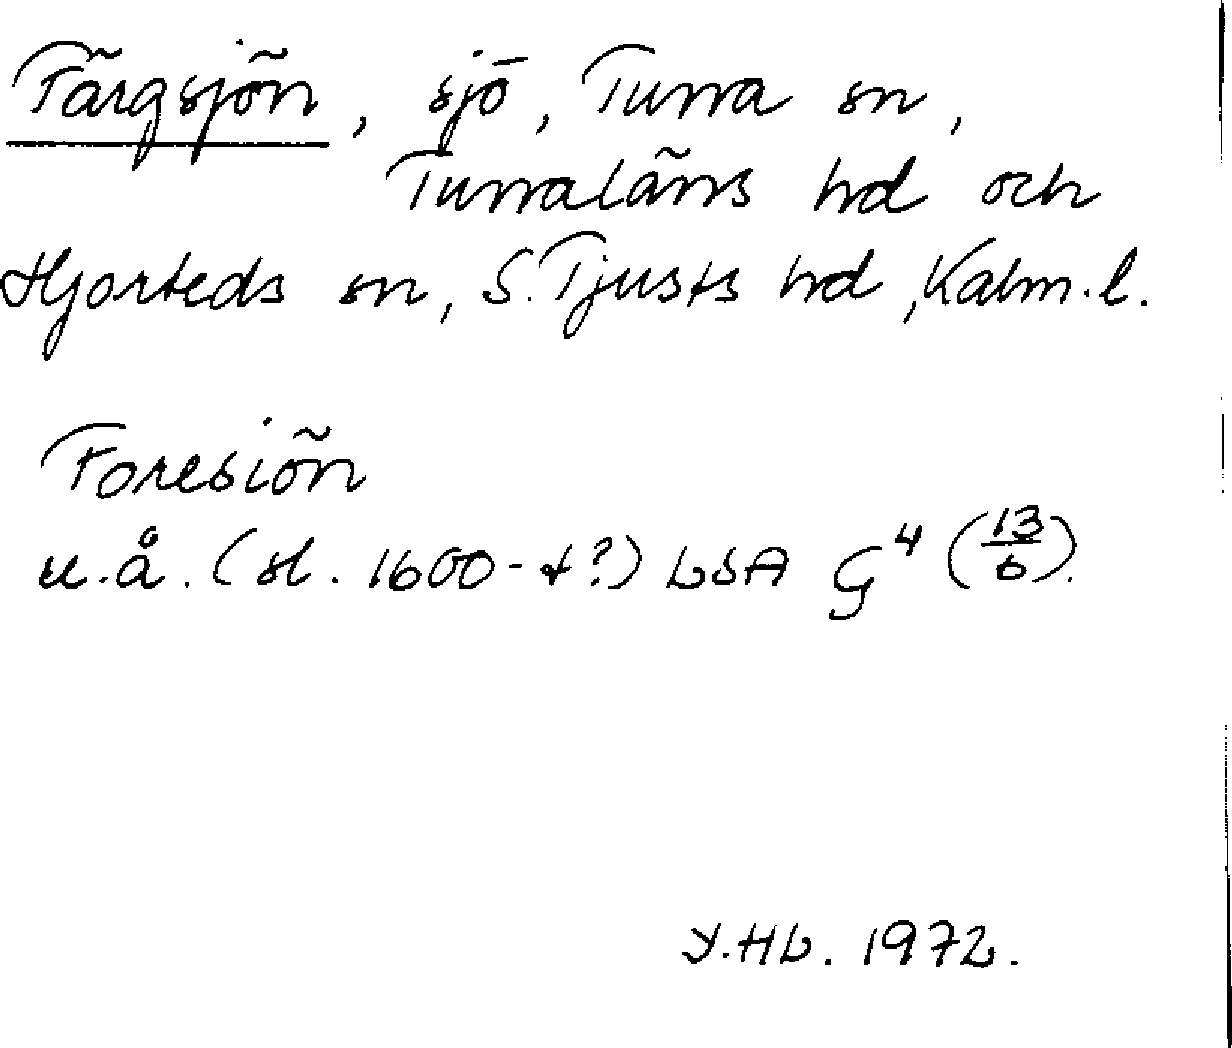 Färgsjön, sjö, Tuna sn,
Tunaläns hd och
Hjorteds sn, S. Tjusts hd, Kalm. l.
Foresiön
u.å. (sl. 1600-t?) LSA G⁴ (13/6).
Y.Hb. 1972.